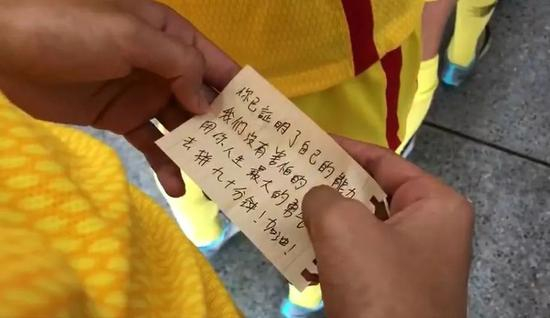 你已証明了自己的能力
我們沒有害怕的
用你人生最大的勇
去拼九十分鐘！加油！